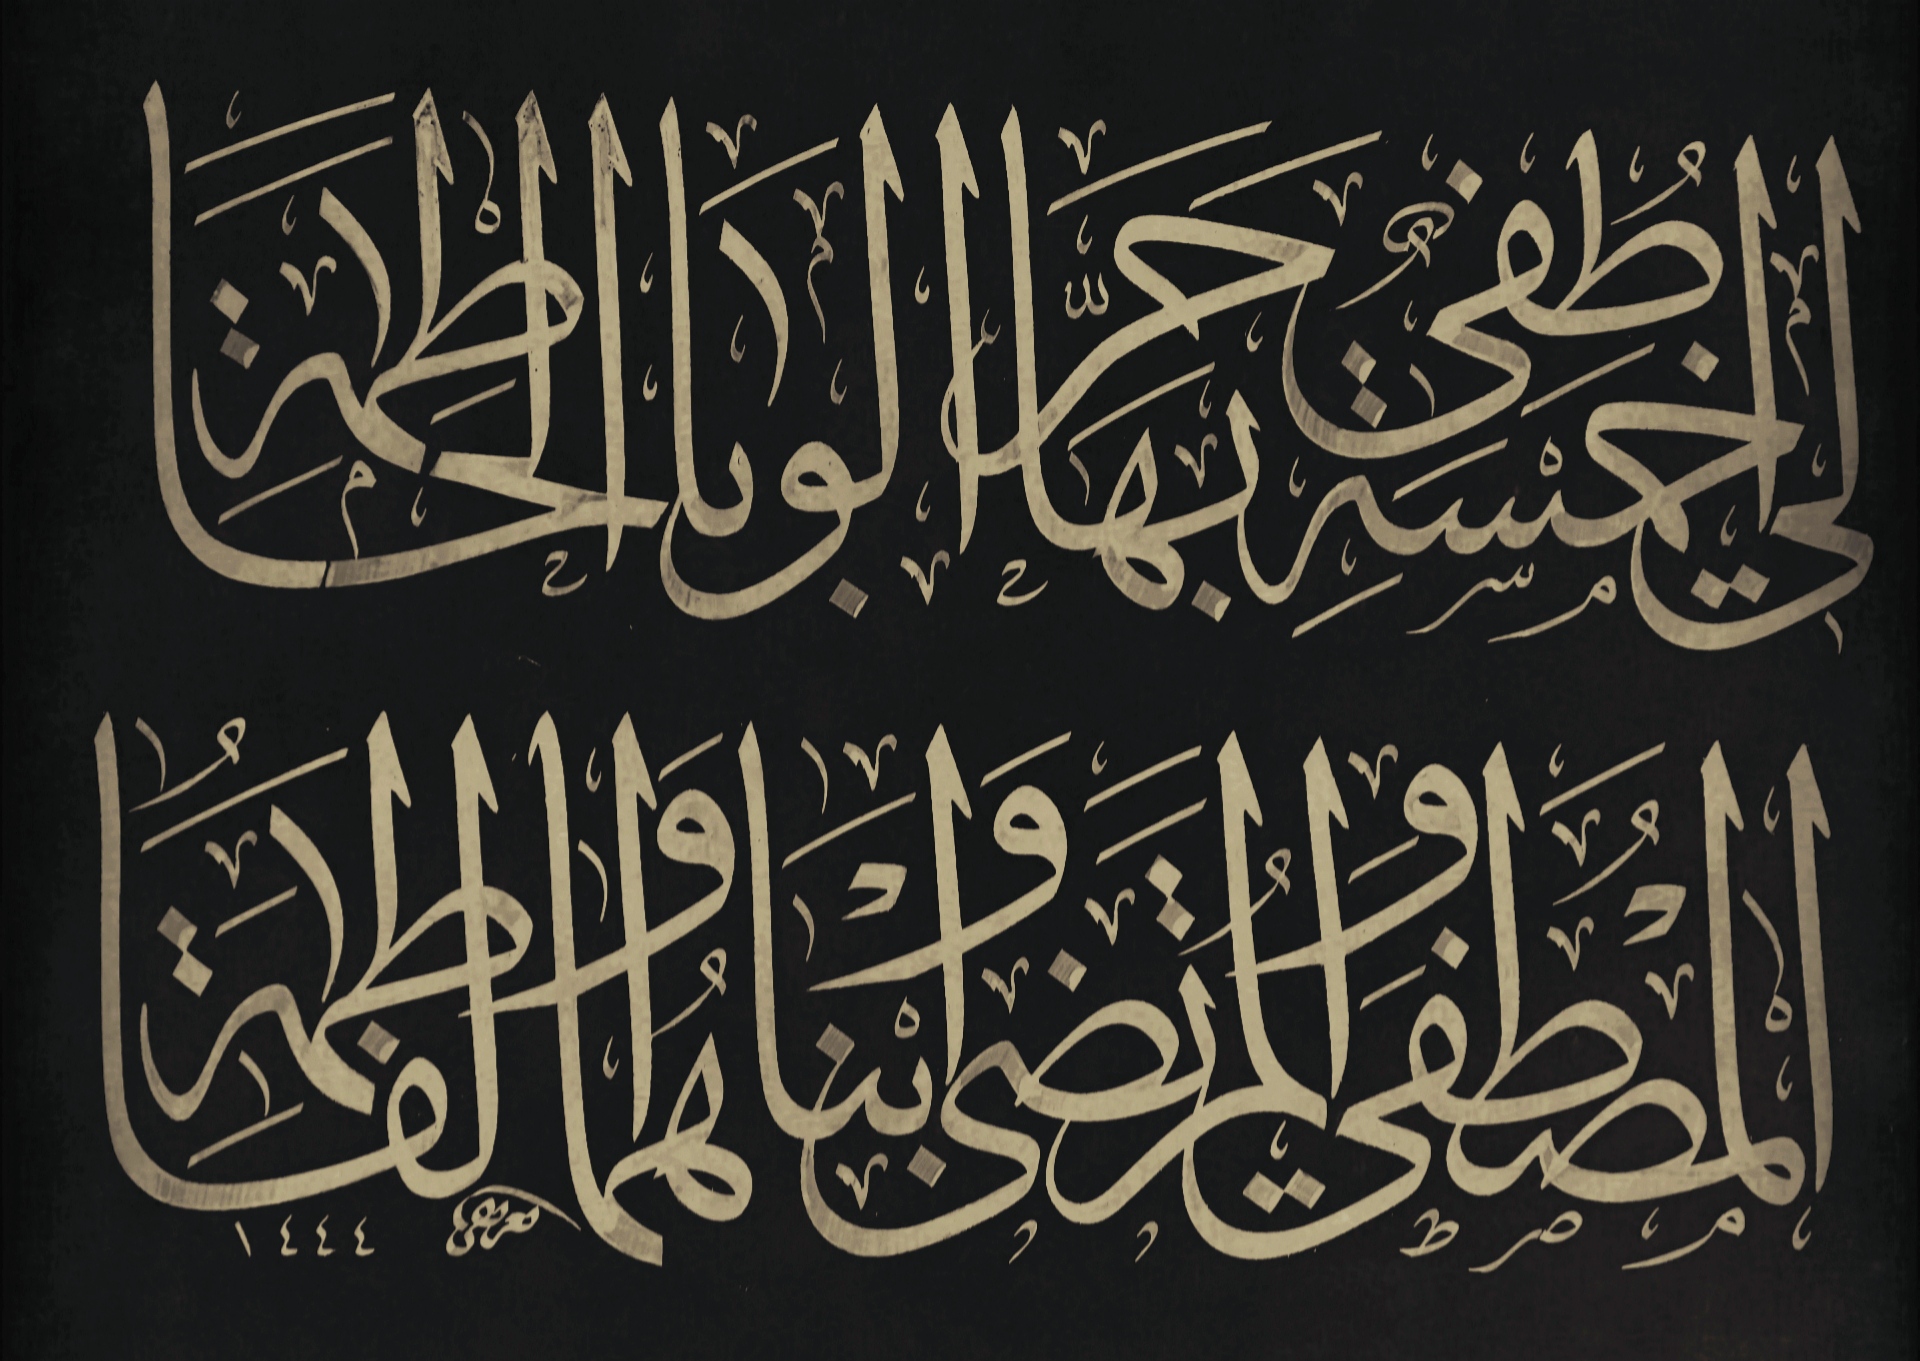 لِي خَمْسَةٌ أُطْفِي بِهَا حَرَّ الْوَبَاءِ الْحَاطِمَة
الْمُصْطَفَى وَالْمُرْتَضَى وَابْنَاهُمَا وَالْفَاطِمَة
١٤٤٤